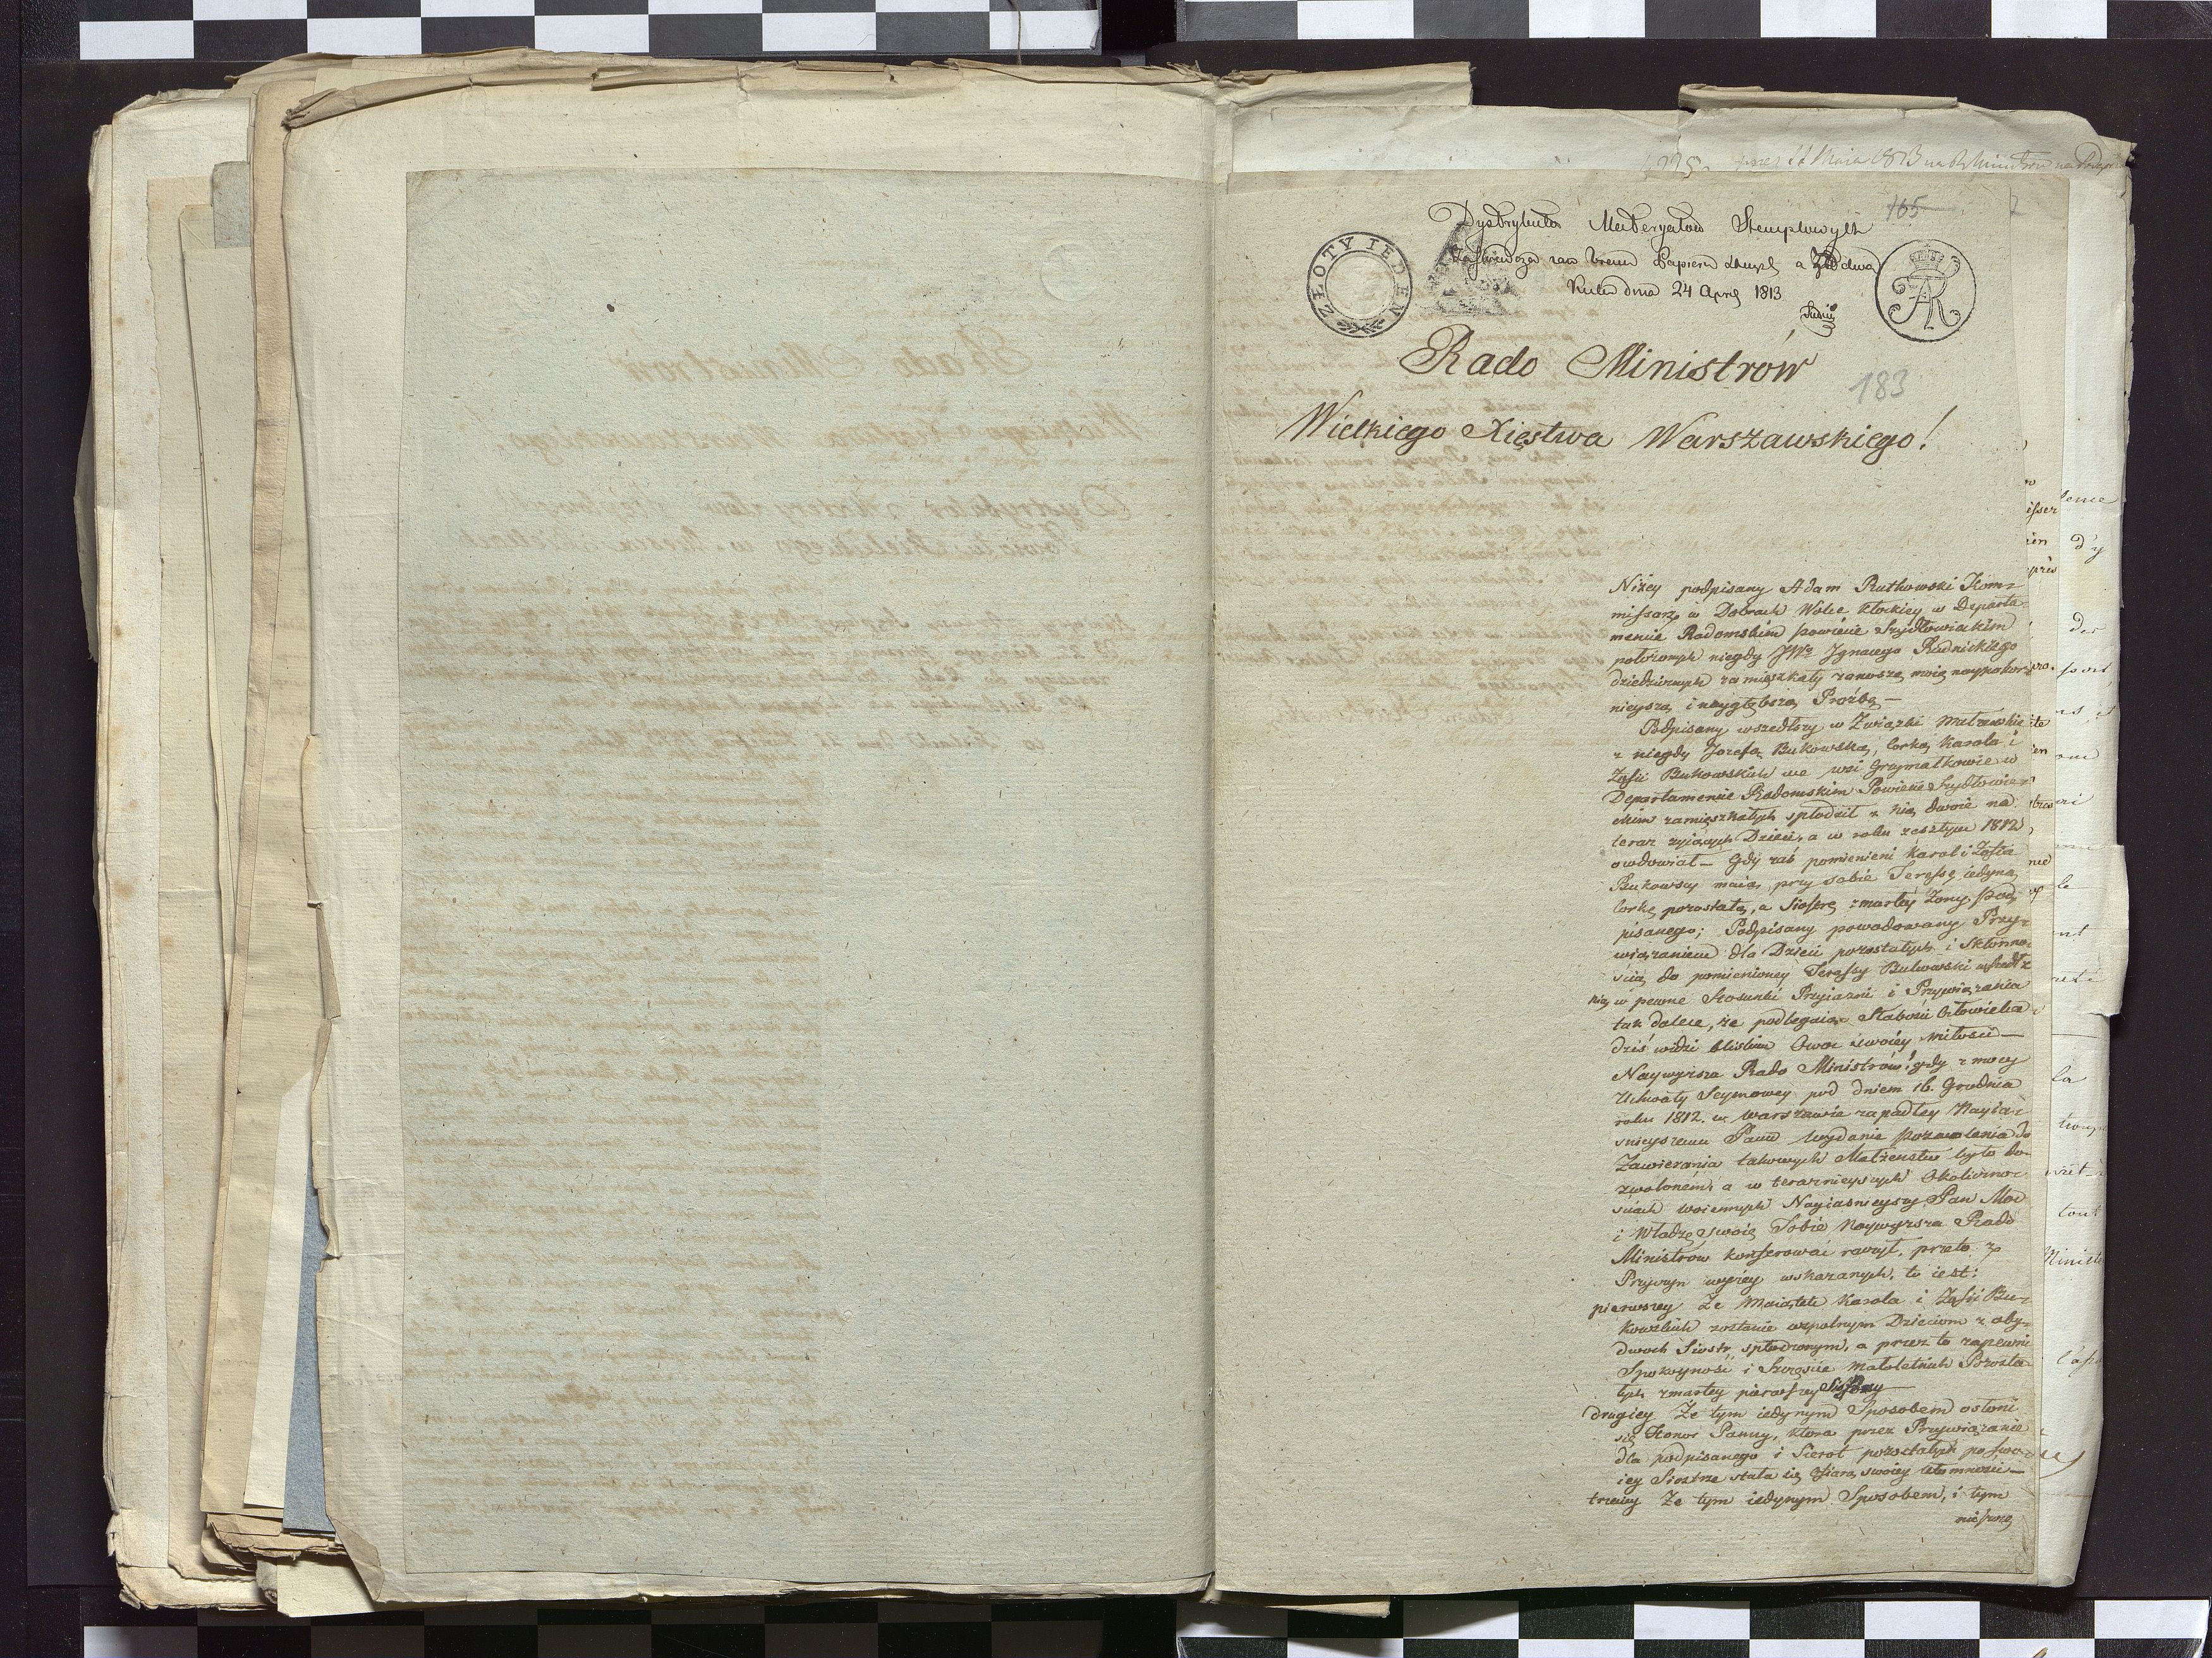 165
Dystrybutor Materyałow Stemplowych
Zaświadcza iako braku Papieru
dnia 24 Apryl 1813
ZŁOTY IEDEN
Rado Ministrów
183
Wielkiego Xięstwa Warszawskiego!
Niżey podpisany Adam Rutkowski Kom=
missarz w Dobrach Wolce Kłockiey w Departa
mencie Radomskim powiecie Szydłowieckim
położonych niegdy JWo Ignacego Rudnickiego
dziedzicznych zamięszkały zanoszę moię naypokor=
nieyszą i naygłębszą Prożbę —
Podpisany wszedłszy w Związki Małżeńskie
z niegdy Jozefą Bukowską, Corką Karola i
Zofii Bukowskich we wsi Grzymałkowie w
Departamencie Radomskim Powiecie Szydłowie=
ckim zamięszkałych spłodził z nią dwoie na
teraz żyiących Dzieci, a w roku zeszłym 1812
owdowiał — Gdy zaś pomienieni Karol i Zofia
Bukowscy maią przy sobie Teressę iedyną
Corkę pozostałą, a Siostrę zmarłéy Zony Pod
pisanego; Podpisany powodowany Przy=
wiązaniem dla Dzieci pozostałych i Skłonno=
ścią do pomienioney Teressy Bukowski wszedł z
nią w pewne Stosunki Przyiaźni i Przywiązania
tak dalece, że podlegaiąc Słabości Człowieka
dziś widzi bliskim Owoc swoiéy miłości —
Naywyższa Rado Ministrów! gdy z mocy
Uchwały Seymowey pod dniem 16. Grudnia
roku 1812. w Warszawie zapadłey Nayia=
śnieyszemu Panu wydanie pozwolenia do
Zawierania takowych Małżeństw było do=
zwolonem, a w teraznieyszych Okoliczno=
ściach woiennych Nayiaśnieyszy Pan Moc
i Władzę swoię Tobie Naywyższa Rado
Ministrow konferować raczył, przeto z
Przyczyn wyżey wskazanych, to iest:
pierwszey Ze Maiątek Karola i Zofii Bu=
kowskich zostanie wspolnym Dzieciom z oby=
dwoch Siostr spłodzonym, a przez to zapewni
Spokoyność i Szczęście małoletnich Pozosta
łych zmarłey pierwszey
drugiey Ze tym iedynym Sposobem osłoni
się Honor Panny, ktora przez Przywiązanie
dla podpisanego i Sierot pozostałych po swo=
iey Siostrze stała się ofiarą swoiey ułomności —
trzeciey Ze tym iedynym Sposobem, i tym